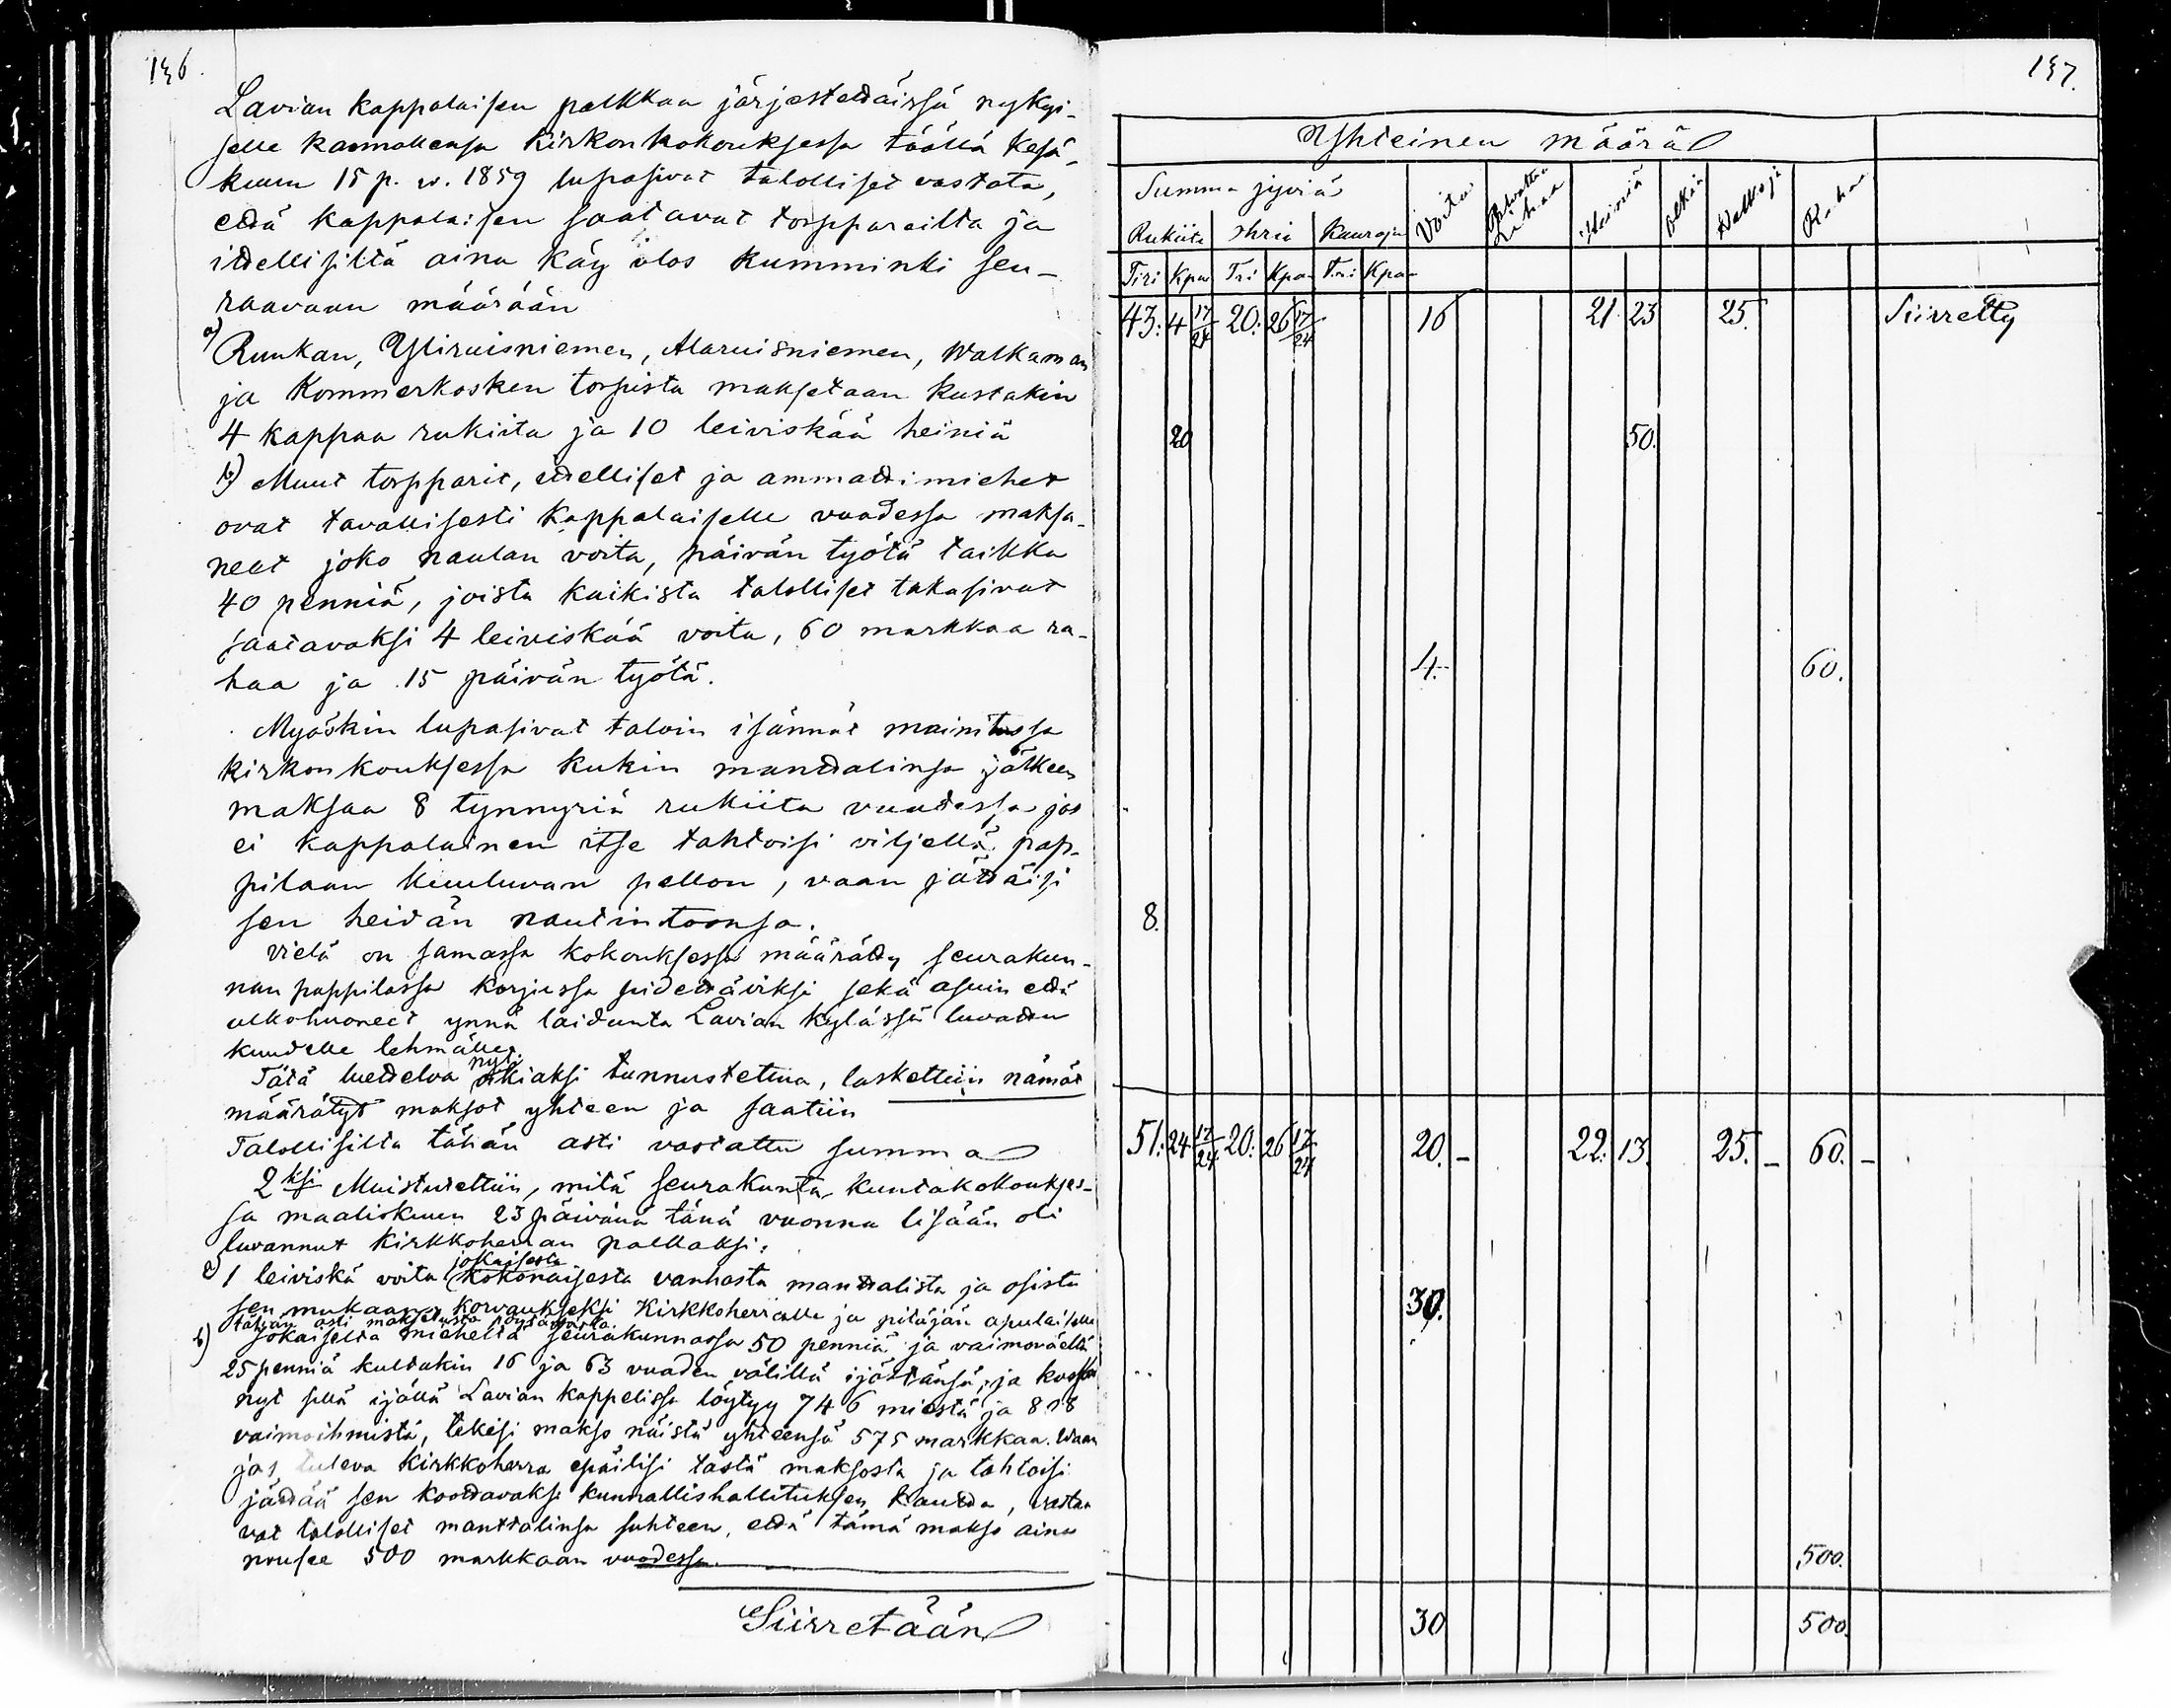 196.
Lavian kappalaisen palkkaa järjestettäissä nykyi-
selle kannallensa kirkonkokouksessa täällä kesä-
kuun 15 p. v. 1859 lupasivat talolliset vastata,
että kappalaisen saatavat torppareilta ja
itsellisiltä aina käy ulos kumminki seu-
raavaan määrään
a) Ruukan, Yliruisniemen, Alaruisniemen, Walkaman
ja Kommerkosken torpista maksetaan kustakin
4 kappaa rukiita ja 10 leiviskää heiniä
b) Muut torpparit, itselliset ja ammattimiehet
ovat tavallisesti kappalaiselle vuodessa maksa-
neet joko naulan voita, päivän työtä taikka
40 penniä, joista kaikista talolliset takasivat
saatavaksi 4 leiviskää voita, 60 markkaa ra-
haa ja 15 päivän työtä.
Myöskin lupasivat taloin isännät mainitussa
kirkonkouksessa kukin manttalinsa jälkeen
maksaa 8 tynnyriä rukiita vuodessa, jos
ei kappalainen itse tahtoisi viljellä pap-
pilaan kuuluvan pellon, vaan jättäisi
sen heidän nautintoonsa.
Vielä on samassa kokouksessa määrätty seurakun-
nan pappilassa korjussa pidettäviksi sekä asuin että
ulkohuoneet ynnä laidunta Lavian kylässä luvattu
kuudelle lehmälle.
nyt
Tätä luetteloa oikiaksi tunnustettua, laskettiin nämät
määrätyt maksot yhteen ja saatiin
Talollisilta tähän asti vastattu summa
2ksi Muistutettiin, mitä seurakunta kuntakokoukses-
sa maaliskuun 23 päivänä tänä vuonna lisään oli
luvannut kirkkoherran palkaksi:
jokaisesta
a) 1 leiviskä voita kokonaisesta vanhasta manttalista ja osista
sen mukaan, korvaukseksi Kirkkoherralle ja pitäjän apulaiselle
tähän asti maksetusta
b) Jokaiselta mieheltä seurakunnassa 50 penniä ja vaimoväeltä
25 penniä kultakin 16 ja 63 vuoden välillä ijästänsä, ja koska
nyt sillä ijällä Lavian kappelissa löytyy 746 miestä ja 808
vaimoihmistä, tekisi makso näistä yhteensä 575 markkaa. Waan
jos tuleva kirkkoherra epäilisi tästä maksosta ja tahtoisi
jättää sen koottavaksi kunnallishallituksen kautta, vastaa
vat talolliset manttalinsa suhteen, että tämä makso aina
nousee 500 markkaan vuodessa.
Siirretään
197.
Yhteinen määrä
Summa jyviä Voita Lihaa Heiniä Olkia Halkoja Rahaa
Rukiita Ohria Kauroja
Tiri Kpa Tri Kpa Tri Kpa
43. 4 17/24 20. 26 17/24 16 21 23 25. Siirretty
20 50.
4. 60.
8.
51. 24 17/24 20. 26 17/24 20. - 22. 13. 25. - 60. -
30.
500.
30 500.